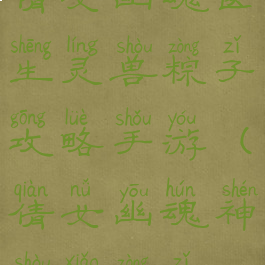 shēng líng shòu zòng zǐ
生灵兽粽子
gōng lüè shǒu yóu
攻略手游（
qiàn nǚ yōu hún shén
倩女幽魂神